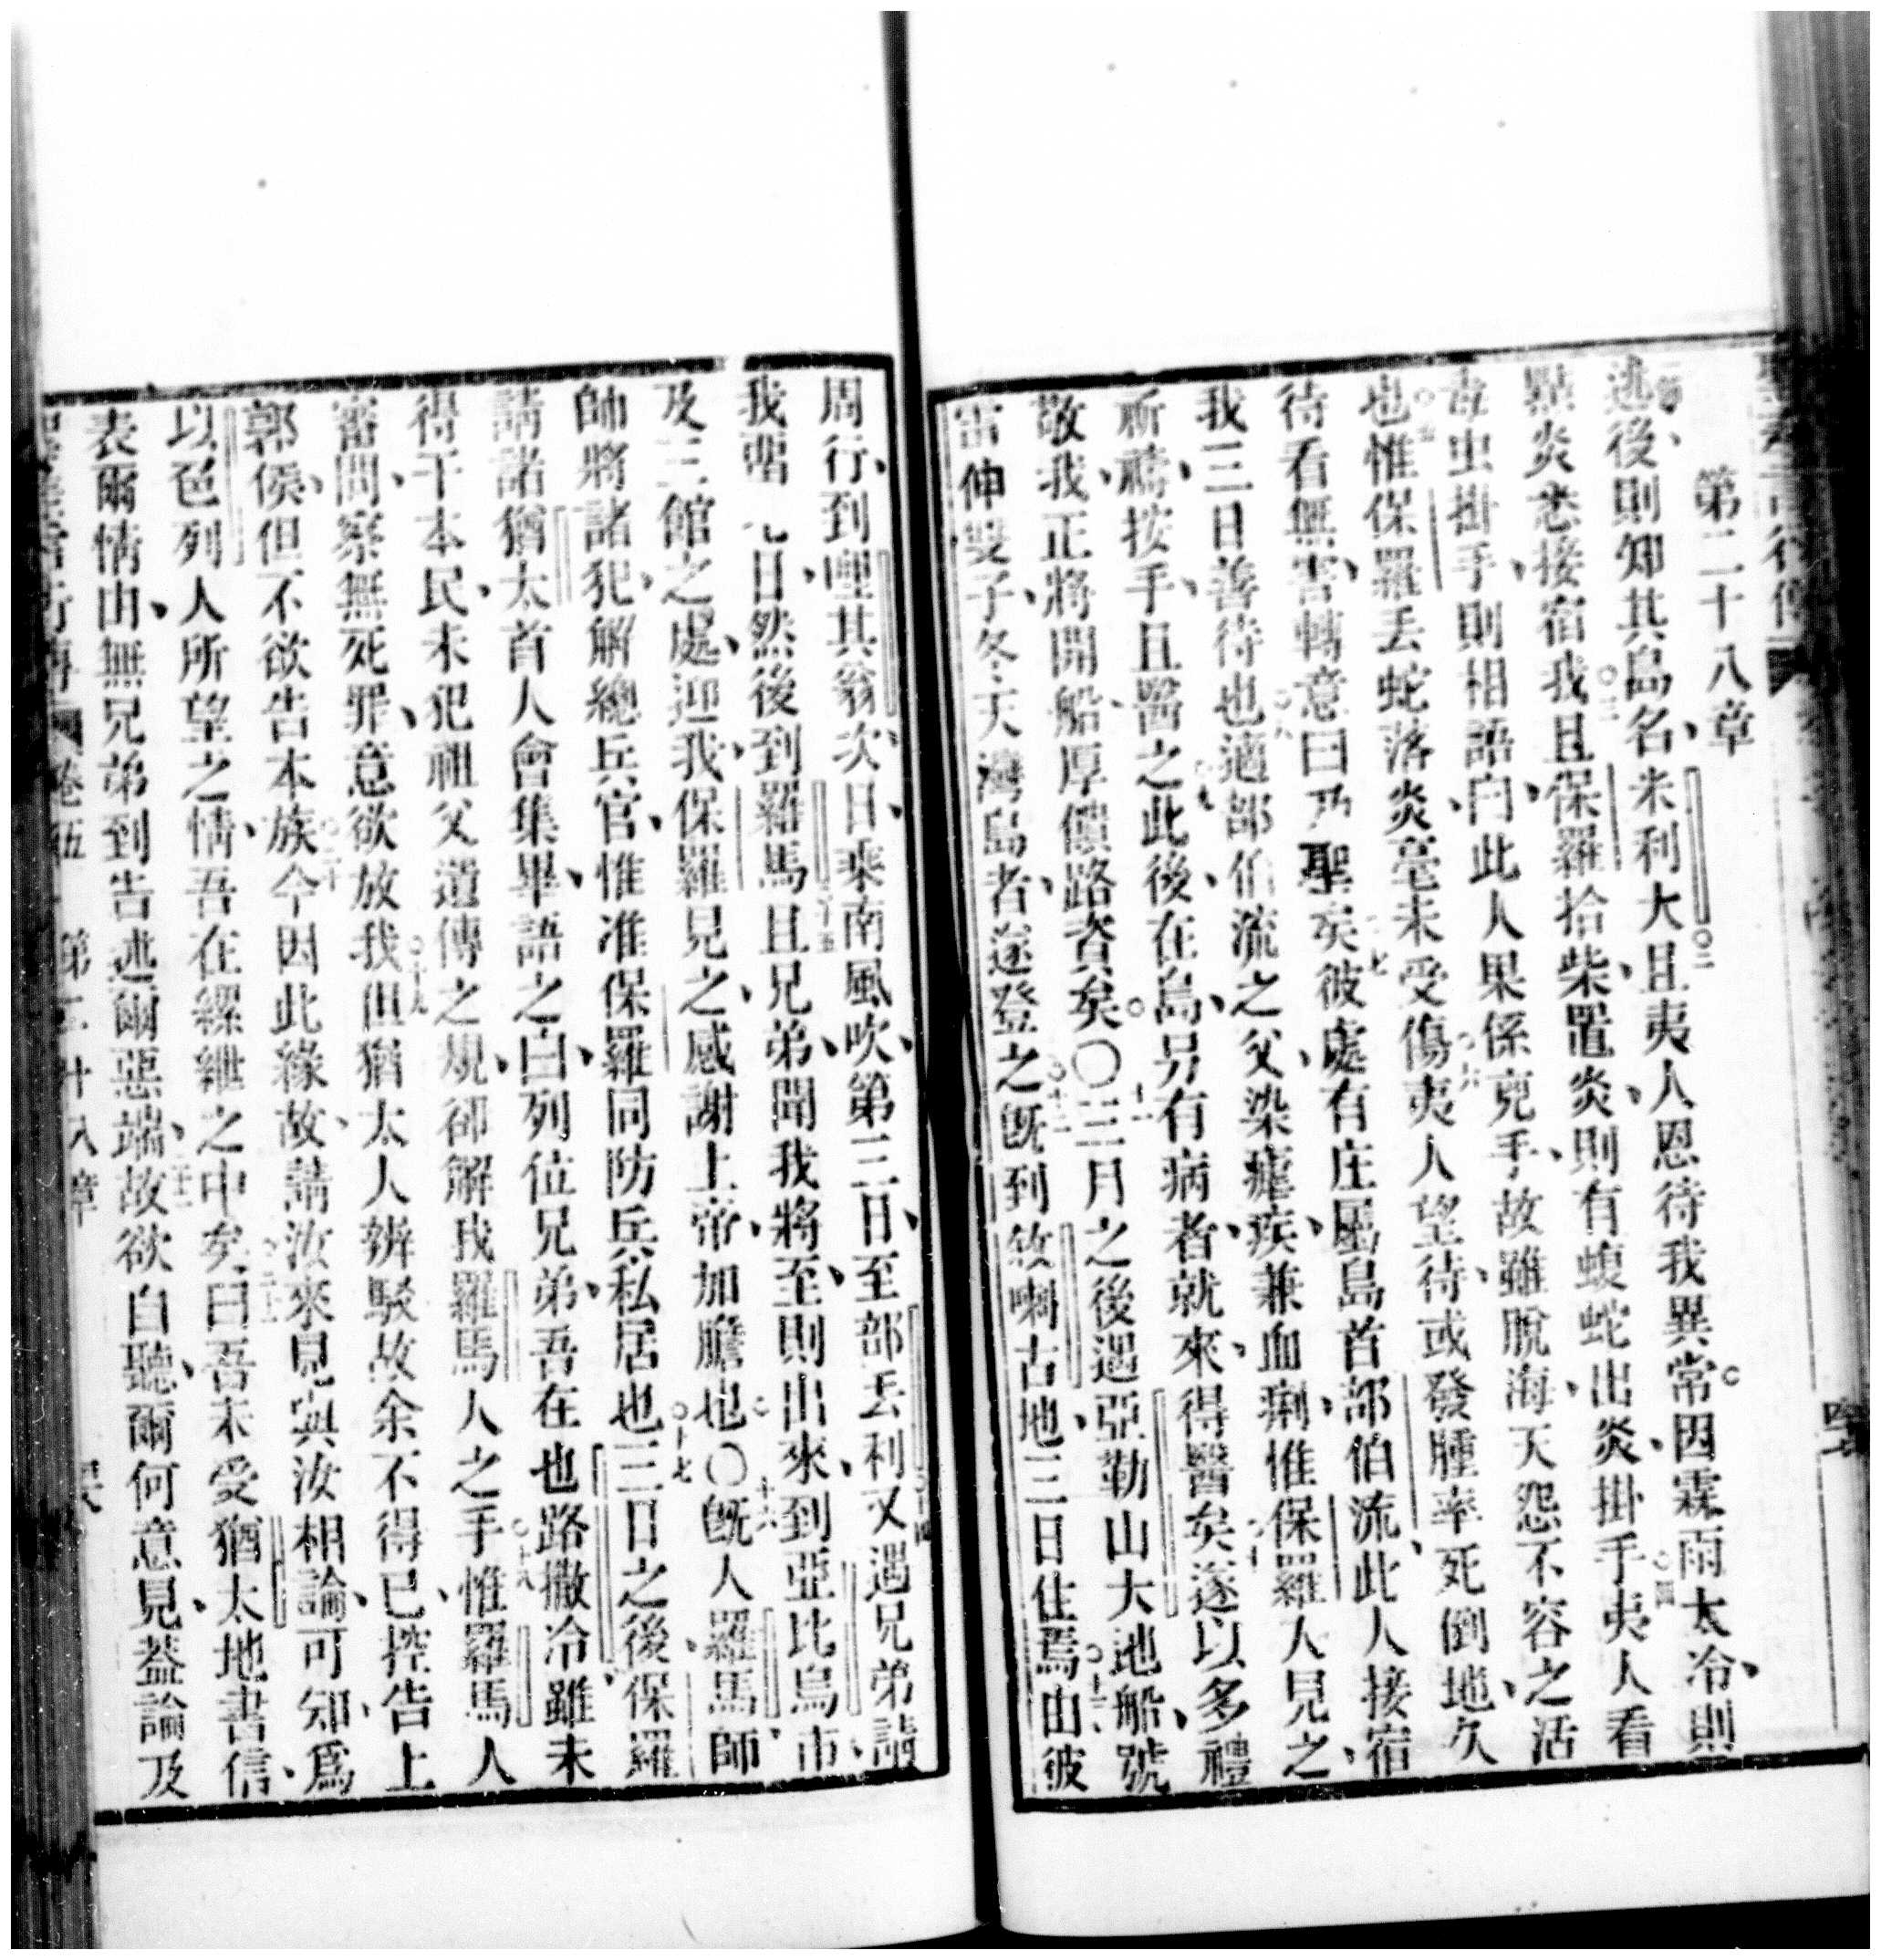 第二十八章
逃後、則知其島名、米利大○二且夷人恩待我異常。因霖雨太冷、則
點炎悉接宿我○三且保羅拾柴、置炎、則有蝮蛇出炎、掛手○四夷人看
毒虫掛手、則相語曰、此人果係兇手、故雖脫海、天怨不容之活
也○五惟保羅丟蛇落炎、毫未受傷○六夷人望待、或發腫、率死倒地、久
待看無害、轉意曰乃聖矣○七彼處有庄屬島首部伯流、此人接宿
我三日善待也○八適部伯流之父、染瘧疾、兼血痢、惟保羅人見之、
祈禱、按手、且醫之○九此後、在島、另有病者、就來、得醫矣○十遂以多禮
敬我、正將開船、厚饋路資矣。○十一三月之後遇亞勒山大池船、號
雷伸雙子、冬天灣島者、遂登之○十二旣到敘喇古地、三日住焉○十三由彼
周行、到哩其翁、次日、乘南風吹、第三日、至部丟利○十四又遇兄弟、請
我留七日、然後到羅馬○十五且兄弟、聞我將至、則出來、到亞比烏市、
及三館之處、迎我、保羅見之、感謝上帝、加膽也○十六旣人羅馬、師
帥將諸犯、解總兵官、惟准保羅同防兵私居也○十七三日之後、保羅
請諸猶太首人會集畢、語之曰、列位兄弟、吾在也路撒冷、雖未
得干本民、未犯祖父遺傳之規、卻解我羅馬人之手○十八惟羅馬人
審問、察無死罪、意欲放我○十九但猶太人辨駁、故余不得已、控告上
郭侯、但不欲告本族○二十今因此緣故、請汝來見、與汝相論、可知、爲
以色列人所望之情、吾在縲紲之中矣○二十一曰吾未受猶太地書信、
表爾情由、無兄弟到告述爾惡端○二十二故欲自聽、爾何意見、蓋論及
卷五 第二十八章